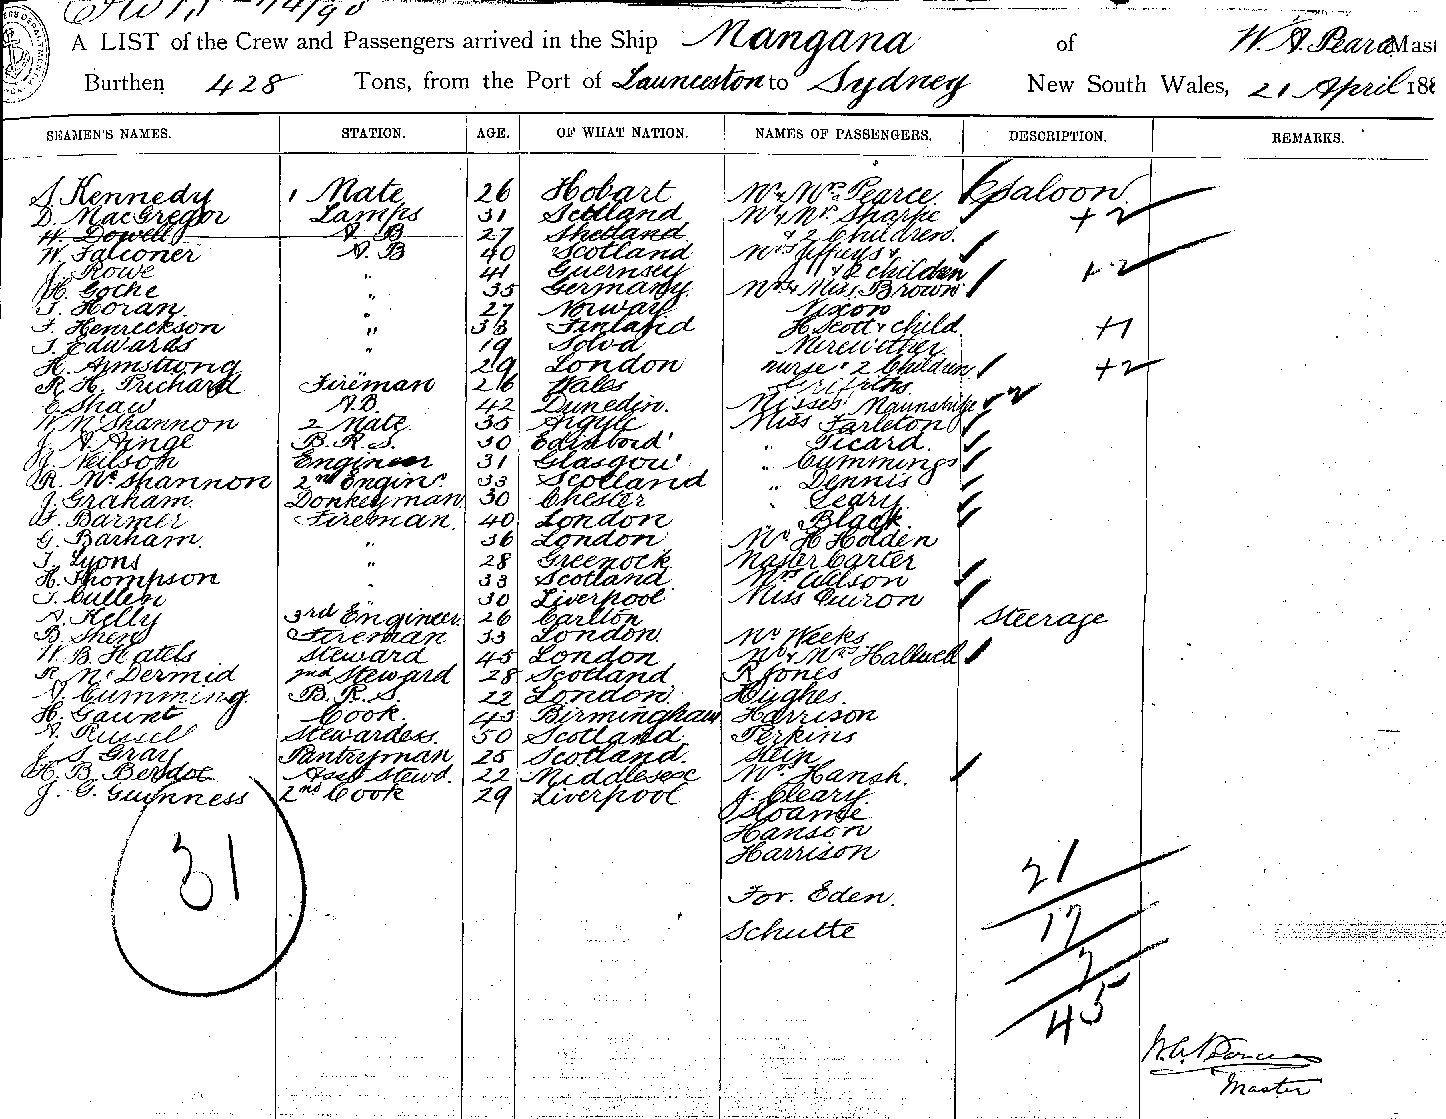 A LIST of the Crew and Passengers arrived in the Ship Mangana of W A Pearce Mast
Burthen 428 Tons, from the Port of Launceston to Sydney New South Wales, 21 April 188
SEAMEN'S NAMES. STATION. AGE. OF WHAT NATION. NAMES OF PASSENGERS. DESCRIPTION. REMARKS.
S Kennedy 1 Mate 26 Hobart Mr & Mrs Pearce Saloon
D. MacGregor Lamps 31 Scotland Mr & Mrs Sharke +2
H Dowell A B 27 Shetland & 2 Children
W. Falconer A. B 40 Scotland Mrs Jeffreys &
J. Rowe " 41 Guernsey & 2 children +2
H. Gothe " 35 Germany Mrs & Miss Brown
T. Horan " 27 Norway Nixon
F. Henreckson " 33 Finland H Scott & child +1
T. Edwards " 19 Solva Merewether
H. Armstrong 29 London nurse & 2 Children +2
R. H. Prichard Fireman 26 Wales Griffiths
C Shaw A.B. 42 Dunedin. Misses 2
W McShannon 2 Mate 35 Argyle Miss Tarleton
J. A. Ainge B. R. S. 30 " Picard.
J. Neilson Engineer 31 Glasgow " Cummings
R. McShannon 2nd Enginr 33 Scotland " Dennis
J. Graham Donkeyman 30 Chester " Geary
F. Barmer Fireman. 40 London " Black
G. Barham. " 36 London Mr H Holden
T. Lyons " 28 Greenock Master Carter
H. Thompson " 33 Scotland Mrs Wilson
T. Cullen 30 Liverpool Miss
A. Kelly 3rd Engineer 26 Carlton Steerage
B. Shen Fireman 33 London. Mr Weeks
W. B. Steward 45 London Mr & Mrs Hallwell
R. McDermid 2nd Steward 28 Scotland R Jones
A. Cumming. B. R. S. 22 London Hughes.
H. Gaunt Cook. 43 Birmingham Harrison
A. Russell Stewardess. 50 Scotland Perkins
J. S Gray Pantryman 25 Scotland. Stein
H. B. Berdot Asst Stewd. 22 Middlesex Mrs Hansh.
J. G. Guinness 2nd Cook 29 Liverpool J. Cleary.
Sloame
Hanson
Harrison
31
21
For Eden.
17
Schutte
7
45
Master